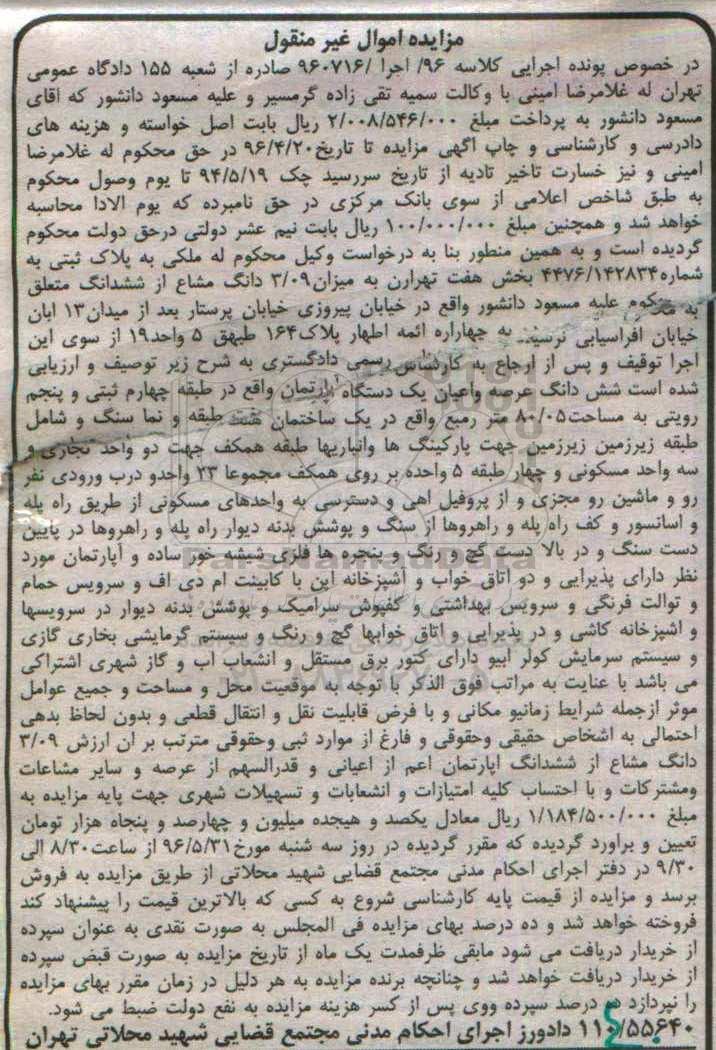 مزایده اموال غیر منقول
در خصوص پونده اجرایی کلاسه ۹۶/ اجرا /۹۶۰۷۱۶ صادره از شعبه ۱۵۵ دادگاه عمومی
تهران له غلامرضا امینی با وکالت سمیه تقی زاده گرمسیر و علیه مسعود دانشور که اقای
مسعود دانشور به پرداخت مبلغ ۲/۰۰۸/۵۴۶/۰۰۰ ریال بابت اصل خواسته و هزینه های
دادرسی و کارشناسی و چاپ اگهی مزایده تا تاریخ۹۶/۴/۲۰ در حق محکوم له غلامرضا
امینی و نیز خسارت تاخیر تادیه از تاریخ سررسید چک ۹۴/۵/۱۹ تا یوم وصول محکوم
به طبق شاخص اعلامی از سوی بانک مرکزی در حق نامبرده که یوم الادا محاسبه
خواهد شد و همچنین مبلغ ۱۰۰/۰۰۰/۰۰۰ ریال بابت نیم عشر دولتی درحق دولت محکوم
گردیده است و به همین منطور بنا به درخواست وکیل محکوم له ملکی به پلاک ثبتی به
شماره۴۴۷۶/۱۴۲۸۳۴ بخش هفت تهرارن به میزان۳/۰۹ دانگ مشاع از ششدانگ متعلق
به محکوم علیه مسعود دانشور واقع در خیابان پیروزی خیابان پرستار بعد از میدان۱۳ ابان
خیابان افراسیابی نرسیده به چهاراره ائمه اطهار پلاک۱۶۴ طبهق ۵ واحد۱۹ از سوی این
اجرا توقیف و پس از ارجاع به کارشناس رسمی دادگستری به شرح زیر توصیف و ارزیابی
شده است شش دانگ عرصه واعیان یک دستگاه اپارتمان واقع در طبقه چهارم ثبتی و پنجم
رویتی به مساحت۸۰/۰۵ متر رمبع واقع در یک ساختمان هفت طبقه و نما سنگ و شامل
طبقه زیرزمین زیرزمین جهت پارکینگ ها وانباریها طبقه همکف جهت دو واحد تجاری و
سه واحد مسکونی و چهار طبقه ۵ واحده بر روی همکف مجموعا ۲۳ واحدو درب ورودی نفر
رو و ماشین رو مجزی و از پروفیل اهی و دسترسی به واحدهای مسکونی از طریق راه پله
و اسانسور و کف راه پله و راهروها از سنگ و پوشش بدنه دیوار راه پله و راهروها در پایین
دست سنگ و در بالا دست گچ و رنگ و پنجره ها فلزی شیشه خور ساده و آپارتمان مورد
نظر دارای پذیرایی و دو اتاق خواب و اشپزخانه اپن با کابینت ام دی اف و سرویس حمام
و توالت فرنگی و سرویس بهداشتی و کفپوش سرامیک و پوشش بدنه دیوار در سرویسها
و اشپزخانه کاشی و در پذیرایی و اتاق خوابها گچ و رنگ و سیستم گرمایشی بخاری گازی
و سیستم سرمایش کولر ابیو دارای کنور برق مستقل و انشعاب اب و گاز شهری اشتراکی
می باشد با عنایت به مراتب فوق الذکر با توجه به موقعیت محل و مساحت و جمیع عوامل
موثر ازجمله شرایط زمانیو مکانی و با فرض قابلیت نقل و انتقال قطعی و بدون لحاظ بدهی
احتمالی به اشخاص حقیقی وحقوقی و فارغ از موارد ثبی وحقوقی مترتب بر ان ارزش ۳/۰۹
دانگ مشاع از ششدانگ اپارتمان اعم از اعیانی و قدرالسهم از عرصه و سایر مشاعات
ومشترکات و با احتساب کلیه امتیازات و انشعابات و تسهیلات شهری جهت پایه مزایده به
مبلغ ۱/۱۸۴/۵۰۰/۰۰۰ ریال معادل یکصد و هیجده میلیون و چهارصد و پنجاه هزار تومان
تعیین و براورد گردیده که مقرر گردیده در روز سه شنبه مورخ۹۶/۵/۳۱ از ساعت۸/۳۰ الی
۹/۳۰ در دفتر اجرای احکام مدنی مجتمع قضایی شهید محلاتی از طریق مزایده به فروش
برسد و مزایده از قیمت پایه کارشناسی شروع به کسی که بالاترین قیمت را پیشنهاد کند
فروخته خواهد شد و ده درصد بهای مزایده فی المجلس به صورت نقدی به عنوان سپرده
از خریدار دریافت می شود مابقی ظرفمدت یک ماه از تاریخ مزایده به صورت قبض سپرده
از خریدار دریافت خواهد شد و چنانچه برنده مزایده به هر دلیل در زمان مقرر بهای مزایده
را نپردازد ده درصد سپرده ووی پس از کسر هزینه مزایده به نفع دولت ضبط می شود.
۱۱۰/۵۵۶۴۰ دادورز اجرای احکام مدنی مجتمع قضایی شهید محلاتی تهران
ParsNamadData